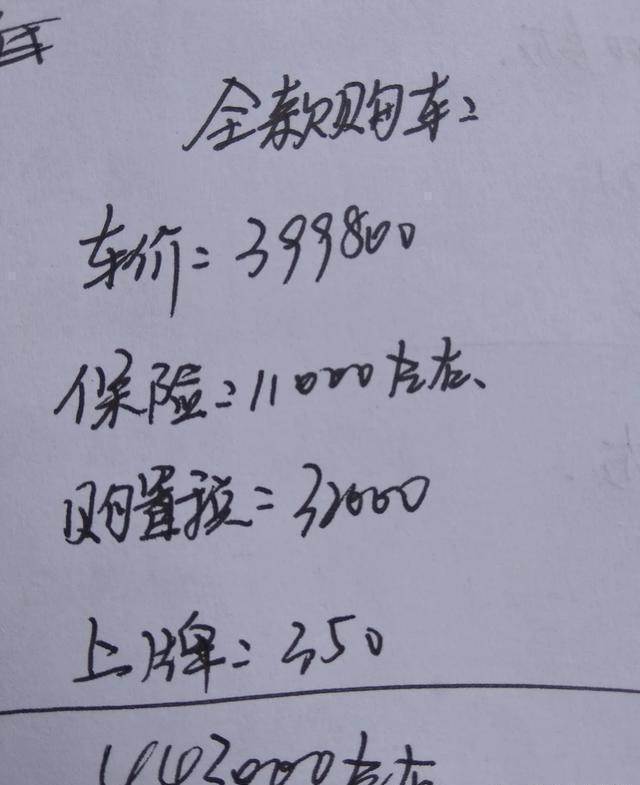 全款购车:
车价: 399800
保险: 11000左右、
购置税: 32000
上牌: 350
443000左右